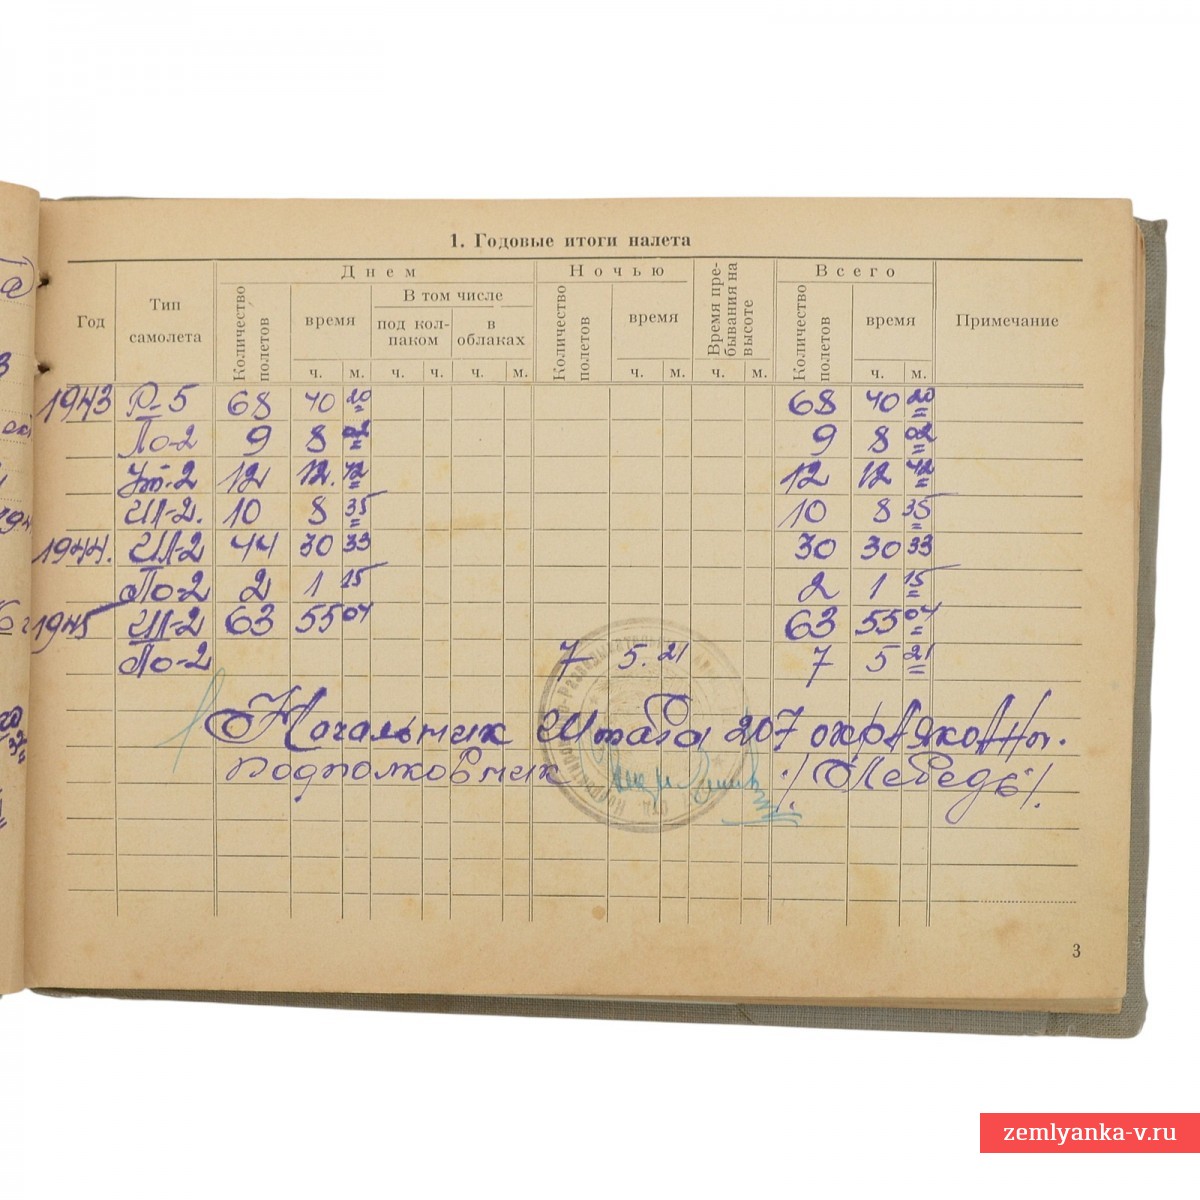 1. Годовые итоги налета
Год Тип самолета Днем Ночью Время пребывания на высоте Всего Примечание
Количество полетов время В том числе Количество полетов время Количество полетов время
под колпаком в облаках
ч. м. ч. ч. ч. м. ч. м. ч. м. ч. м.
1943 Р-5 68 40 20 68 40 20
По-2 9 8 02 9 8 02
Ут-2 12 12. 42 12 12 42
Ил-2. 10 8 35 10 8 35
1944. Ил-2 44 30 33 30 30 33
По-2 2 1 15 2 1 15
1945 Ил-2 63 55 04 63 55 04
По-2 7 5. 21 7 5 21
Начальник Штаба 207
подполковник /Лебедь/.
3
zemlyanka-v.ru